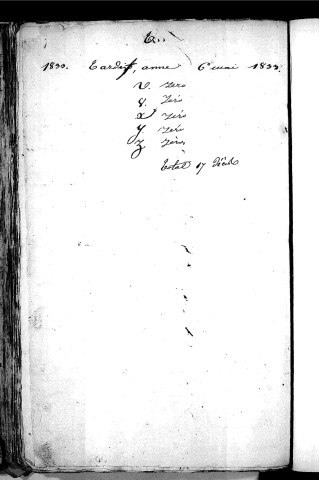 T..
1830. Tardif, anne 6 mai 1833.
V. Zero
8. Zéro
x Zéro
y Zéro
z Zéro
Total 17 Décès